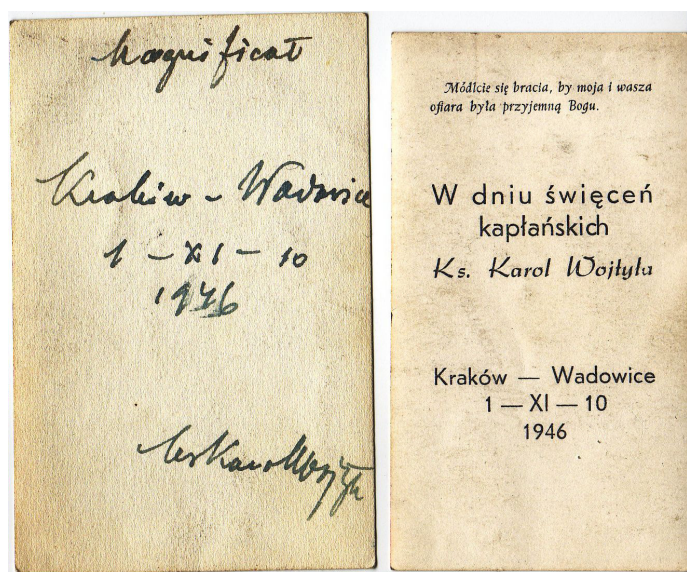 Magnificat
Kraków – Wadowice
1 – XI – 10
1946
Módlcie się bracia, by moja i wasza
ofiara była przyjemną Bogu.
W dniu święceń
kapłańskich
Ks. Karol Wojtyła
Kraków — Wadowice
1 — XI — 10
1946